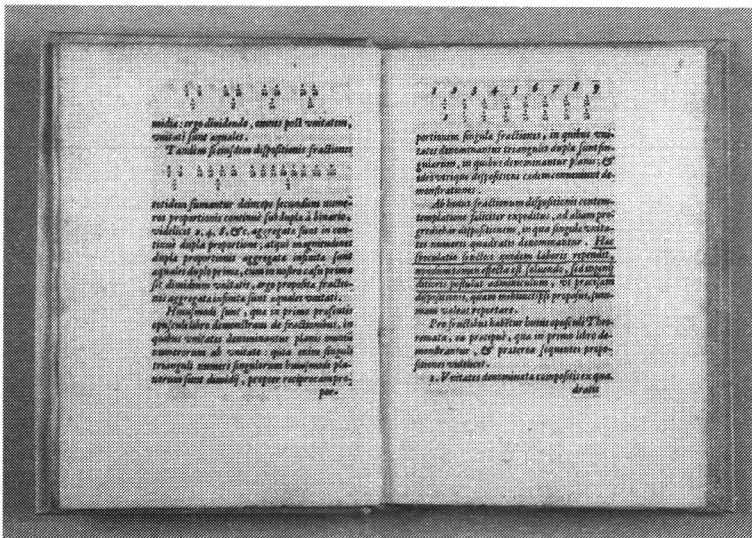 midia: ergo dividendo, omnes post unitatem,
unitati sunt aquales.
Tandem si eiusdem dispositionis fractiones
totidem sumantur deinceps secundum nume-
ros proportionis continuè subdupla à binario,
videlicet 2, 4, 8, &c. aggregata sunt in con-
tinua dupla proportione, atqui magnitudines
dupla proportionis aggregata infinita sunt
aquales dupla prima, cum in nostro casu prima
sit dimidium unitatis, ergo proposita fractio-
nis aggregata infinita sunt aquales unitati.
Huiusmodi sunt, qua in primo prasentis
opusculi libro demonstram de fractionibus, in
quibus unitates denominantur planis
numerorum ab unitate: quia enim singuli
trianguli numeri singulorum huiusmodi pla-
norum sunt dimidij, propter reciprocam pro-
por-
1 2 3 4 5 6 7 8 9
portionem singula fractiones, in quibus uni-
tates denominantur triangulis dupla sunt sin-
gularum, in quibus denominantur planis; &
ideo utrique dispositioni eadem conveniunt de-
monstrationes.
Ab huius fractionum dispositionis contem-
templatione feliciter expeditus, ad aliam pro-
grediebar dispositionem, in qua singula unita-
tes numeris quadratis denominantur. Hac
speculatio fructus quidem laboris rependit,
nondum tamen effecta est solvendo, sed
ditioris postulat adminiculum, ut pracisam
dispositionis, quam mihimetipsi proposui, sum-
mam valeat reportare.
Pro fractis habetur huius opusculi Theo-
remata, ea pracipuè, qua in primo libro de-
monstrantur, & praterea sequentes propo-
sitiones videlicet.
1. Unitates denominata compositis ex qua-
dratis